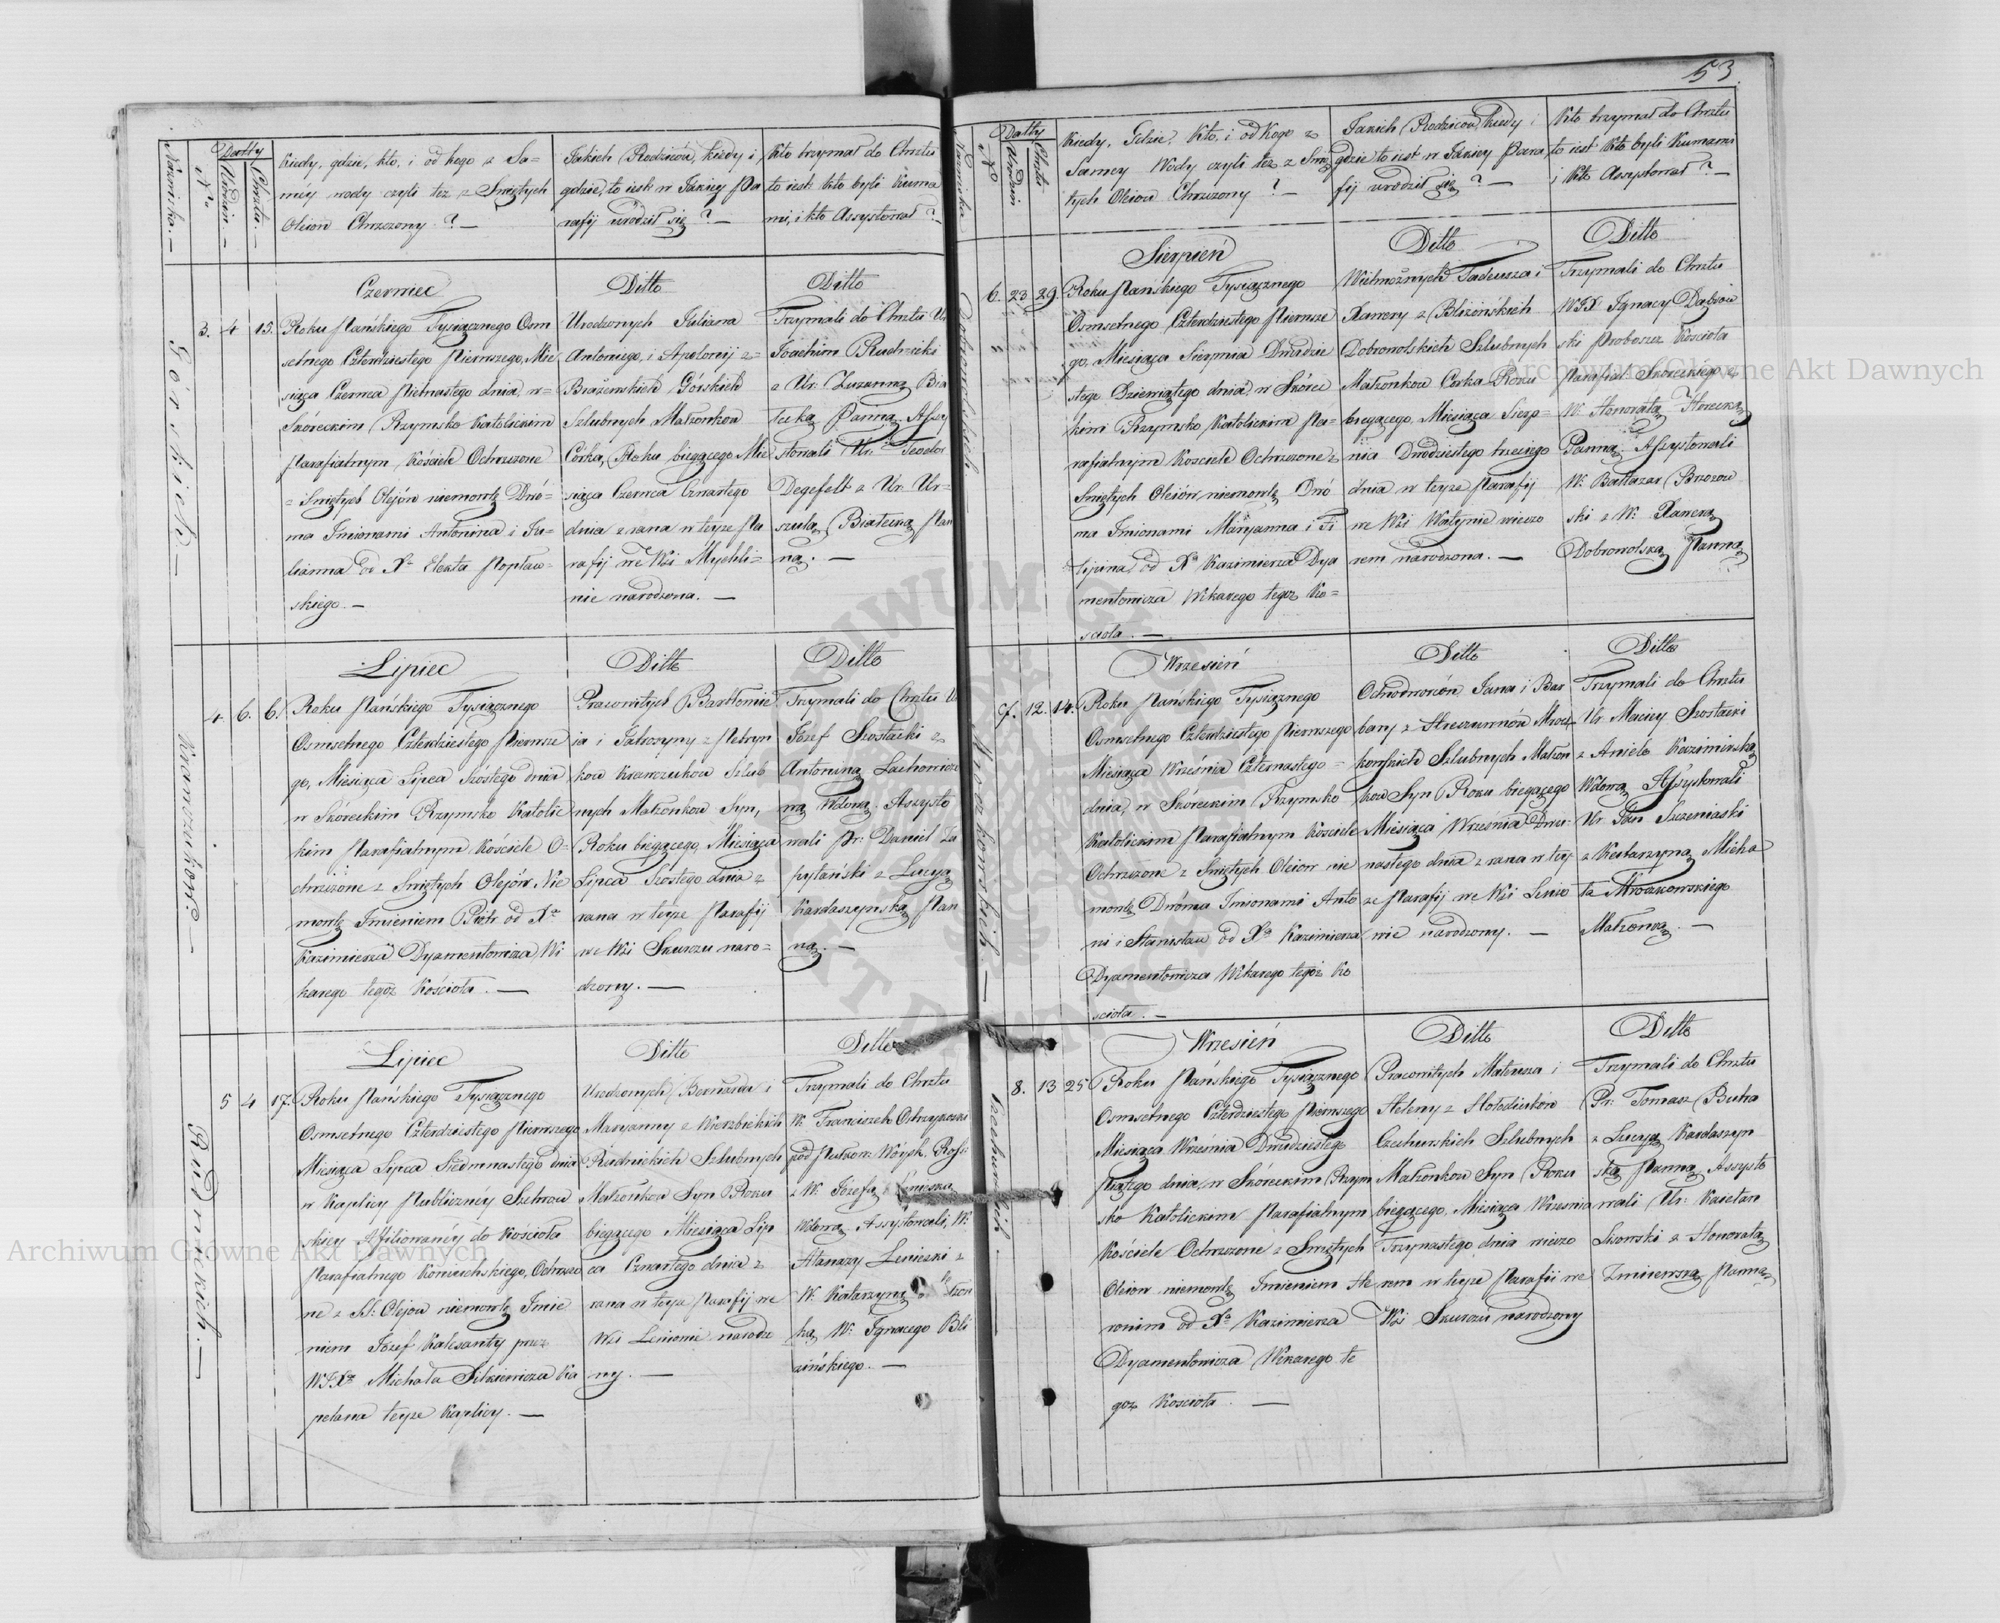 53.
Nazwiska. —
No
Datty
Urodzin. —
Chrztu. —
Kiedy, gdzie, kto, i od kogo z Sa=
mey wody czyli też z Świętych
Oleiow Chrzczony? —
Jakich Rodziców, kiedy i
gdzie, to iest w Jakiey Pa
rafij urodził się? —
Kto trzymał do Chrztu
to iest kto byli Kuma
mi, i kto Assystował?
Górskich —
3. 4 15.
Czerwiec
Roku Pańskiego Tysiącznego Osm
setnego Czterdziestego Pierwszego, Mie
siąca Czerwca Pietnastego dnia, w=
Skóreckim Rzymsko Katolickim
Parafialnym Kościele Ochrzczone
z Świętych Olejów niemowlę Dwó=
ma Jmionami Antonina i Ju=
lianna od Xa Elekta Popław=
skiego. —
Ditto
Urodzonych Juliana
Antoniego, i Apolonij z=
Brażewskich Górskich
Szlubnych Małżonkow
Corka, Roku bieżącego Mie
siąca Czerwca Czwartego
dnia z rana w teyże Pa
rafij we Wsi Mychli=
nie narodzona. —
Ditto
Trzymali do Chrztu Ur
Joachim Rudnicki
z Ur: Zuzanną Bia
łecką Panną, Assy
stowali Ur: Teodor
Degefelt z Ur. Ur=
szulą Białecką Pan
ną. —
Krawczuków. —
4. 6. 6.
Lipiec
Roku Pańskiego Tysiącznego
Osmsetnego Czterdziestego Pierwsze
go, Miesiąca Lipca Szóstego dnia
w Skóreckim Rzymsko Katolic
kim Parafialnym Kościele O=
chrzczone z Świętych Olejów, Nie
mowlę Jmieniem Piotr od Xa
Kazimierza Dyamentowicza Wi
karego tegoż Kościoła. —
Ditto
Pracowitych Bartłomie
ja i Katarzyny z Petryn
kow Krawczukow Szlub
nych Małżonkow Syn,
Roku bieżącego, Miesiąca
Lipca Szostego dnia z
rana w teyże Parafij
we Wsi Skurczu naro=
dzony. —
Ditto
Trzymali do Chrztu Ur
Józef Szostacki z
Antoniną Lachowicz
ną Wdową, Assysto
wali Pr: Daniel Za
pylański z Lucyą
Kardaszynską Pan
ną. —
Rudnickich. —
5 4 17.
Lipiec
Roku Pańskiego Tysiącznego
Osmsetnego Czterdziestego Pierwszego
Miesiąca Lipca Siedmnastego dnia
w Kaplicy Publiczney Szelwow
skiey Affiliowaney do Kościoła
Parafialnego Koniuchskiego, Ochrzczo
ne z SS: Olejow niemowlę Jmie
niem Józef Kalasanty przez
WJXa Michała Sitkiewicza Ka
pelana teyże Kaplicy. —
Ditto
Urodzonych Bernarda i
Maryanny z Wierzbickich
Rudnickich Szlubnych
Małżonkow Syn Roku
bieżącego Miesiąca Lip
ca Czwartego dnia z
rana w teyże Parafij we
Wsi Leniowie narodzo
ny. —
Ditto
Trzymali do Chrztu
W: Franciszek Ostrzykowski
pod Pułkow: Woysk. Ross:
z W: Józefą
Wdową Assystowali, W:
Atanazy Leniecki z
W: Katarzyną
ką W: Ignacego Bli
zińskiego. —
Nazwiska
No
Datty
Urodzin
Chrztu
Kiedy, Gdzie, Kto, i od Kogo z
Samey Wody czyli też z Swię
tych Oleiow Chrzczony? —
Jakich Rodziców, Kiedy i
gdzie to iest w Jakiey Para
fij urodził się? —
Kto trzymał do Chrztu
to iest Kto byli Kumami
i Kto Assystował? —
Dobrowolskich
6. 23 29.
Sierpień
Roku Pańskiego Tysiącznego
Osmsetnego Czterdziestego Pierwsze
go, Miesiąca Sierpnia Dwudzie
stego Dziewiątego dnia w Skórec
kim Rzymsko Katolickim Pa=
rafialnym Kościele Ochrzczone z
Swiętych Olejów niemowlę Dwó
ma Jmionami Maryanna i Fi
lipina od Xa Kazimierza Dya
mentowicza Wikarego tegoż Ko=
scioła. —
Ditto
Wielmożnych Tadeusza i
Xawery z Blizińskich
Dobrowolskich Szlubnych
Małżonkow Corka Roku
bieżącego, Miesiąca Sierp=
nia Dwudziestego trzeciego
dnia w teyże Parafij
we Wsi Watynie wieczo
rem narodzona. —
Ditto
Trzymali do Chrztu
WJX Ignacy Dąbrow
ski Proboszcz Kościoła
Parafial: Skóreckiego z
W: Honoratą Horecką
Panną Assystowali
W: Baltazar Brzozow
ski z W: Xawerą
Dobrowolską Panną
Mroczkowskich —
7. 12. 14.
Wrzesień
Roku Pańskiego Tysiącznego
Osmsetnego Czterdziestego Pierwszego
Miesiąca Września Czternastego =
dnia, w Skóreckim Rzymsko
Katolickim Parafialnym Kościele
Ochrzczone z Świętych Oleiow nie
mowlę Dwóma Jmionami Anto
ni i Stanisław od Xa Kazimierza
Dyamentowicza Wikarego tegoż Ko
scioła. —
Ditto
Ochodworcow Jana i Bar
bary z Mrocz
kowskich Szlubnych Małżon
kow Syn Roku bieżącego
Miesiąca Września Dwu=
nastego dnia z rana w tey
że Parafij we Wsi Leniо
wie narodzony. —
Ditto
Trzymali do Chrztu
Ur. Maciey Szostacki
z Anielą Kazimirską
Wdową Assystowali
Ur. Jan Szczeniaski
z Katarzyną Micha
ła Mroczkowskiego
Małżonką. —
Czechowskich —
8. 13 25
Wrzesień
Roku Pańskiego Tysiącznego
Osmsetnego Czterdziestego Pierwszego
Miesiąca Września Dwudziestego
Piątego dnia, w Skóreckim Rzym
sko Katolickim Parafialnym
Kościele Ochrzczone z Świętych
Oleiow niemowlę Jmieniem He
ronim od Xa Kazimierza
Dyamentowicza Wikarego te
goż Kościoła. —
Ditto
Pracowitych Mateusza i
Heleny z Hołodiukow
Czechowskich Szlubnych
Małżonkow Syn Roku
bieżącego, Miesiąca Września
Trzynastego dnia wieczo
rem w teyże Parafij we
Wsi Skurczu narodzony
Ditto
Trzymali do Chrztu
Pr: Tomasz Buha
z Lucyą Kardaszyn
ską Panną Assysto
wali Ur: Kaietan
Lisowski z Honoratą
Zmiiewską Panną.
Archiwum Główne Akt Dawnych
Archiwum Główne Akt Dawnych
ARCHIWUM GŁÓWNE AKT DAWNYCH